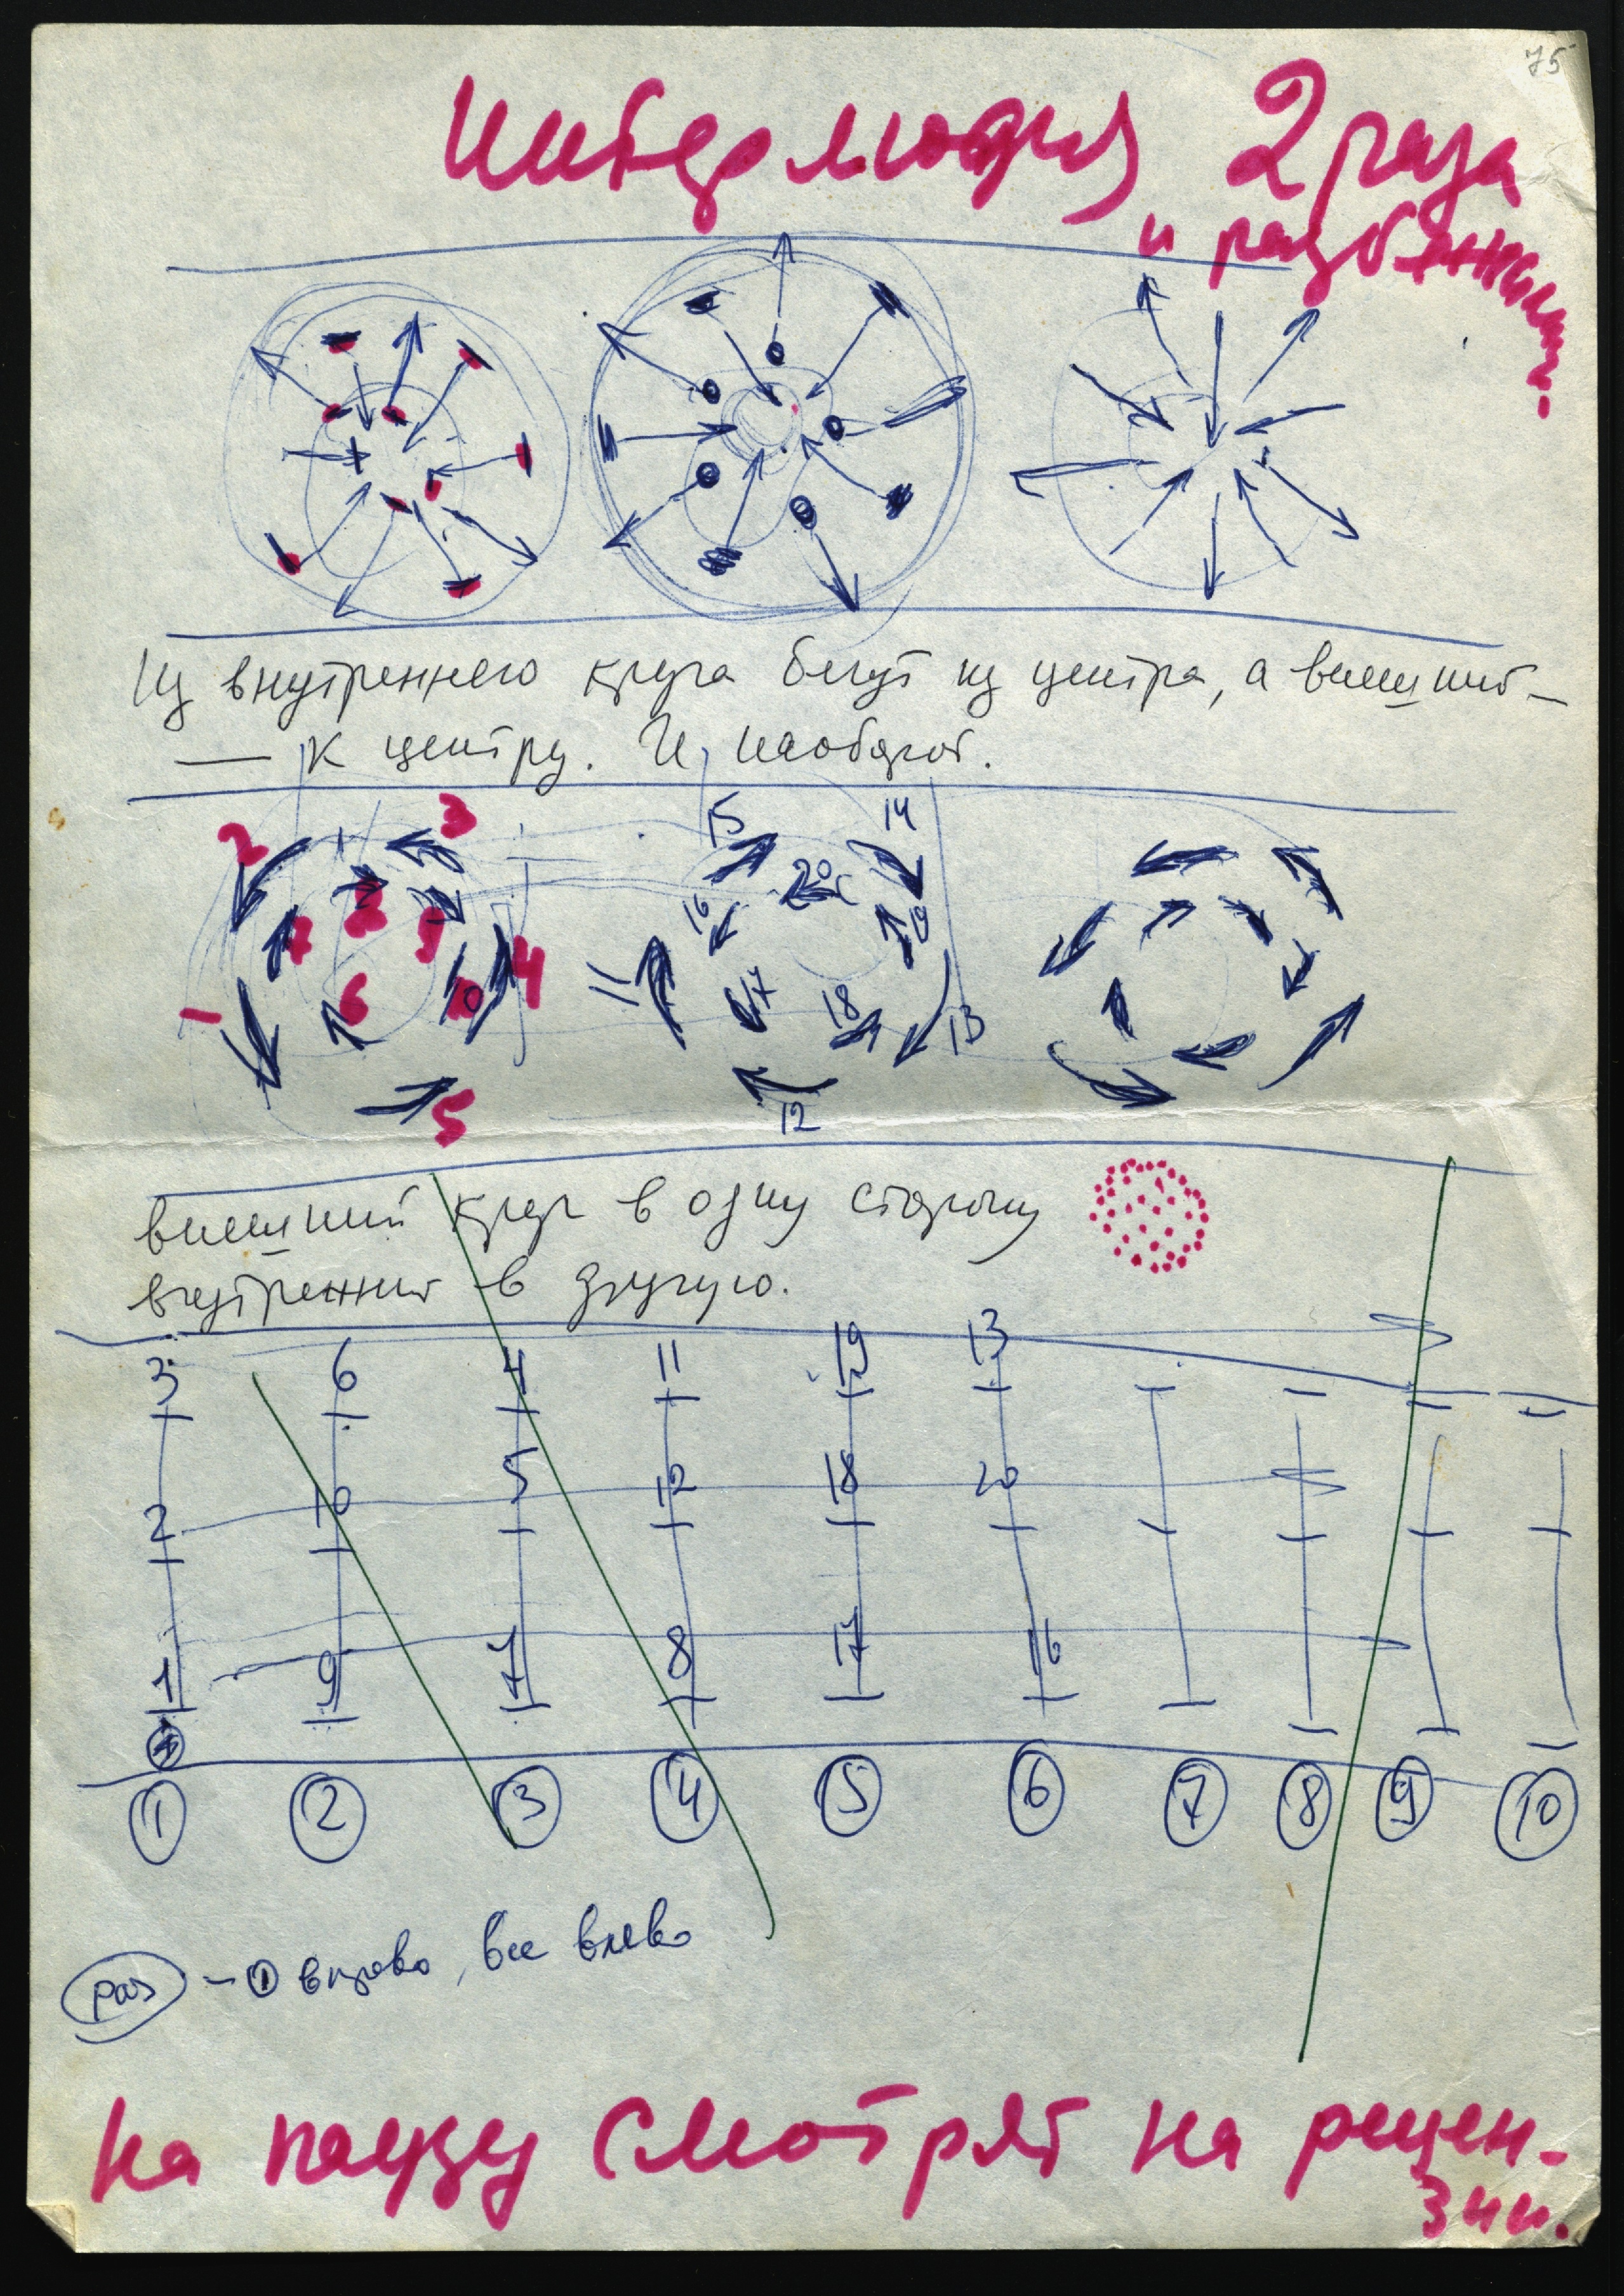 75
интерлюдия 2 раза
и разбежки
Из внутреннего круга бегут из центра, а внешний —
— к центру. И наоборот.
2 3 15 14
7 8 9 4 16 20 19
1 6 10 11 17 18 13
5 12
внешний круг в одну сторону
внутренний в другую.
3 6 4 11 19 13
2 10 5 12 18 20
1 9 7 8 17 16
1 2 3 4 5 6 7 8 9 10
раз — 1 вправо, все влево
На паузу смотрят на рецен-
зии.